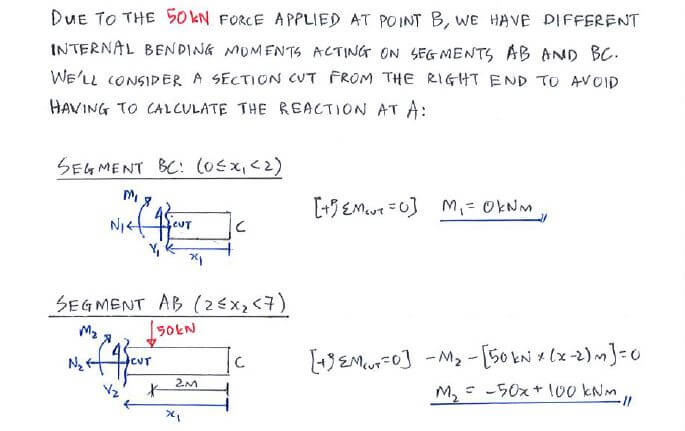 DUE TO THE 50kN FORCE APPLIED AT POINT B, WE HAVE DIFFERENT
INTERNAL BENDING MOMENTS ACTING ON SEGMENTS AB AND BC.
WE'LL CONSIDER A SECTION CUT FROM THE RIGHT END TO AVOID
HAVING TO CALCULATE THE REACTION AT A:
SEGMENT BC: (0≤x₁<2)
M₁
N₁
CUT
C
V₁
x₁
[+↺ ΣM_CUT=0] M₁=0kNm
SEGMENT AB (2≤x₂<7)
50kN
M₂
N₂
CUT
C
V₂
2M
x₁
[+↺ ΣM_CUT=0] -M₂-[50kN×(x-2)m]=0
M₂ = -50x+100 kNm